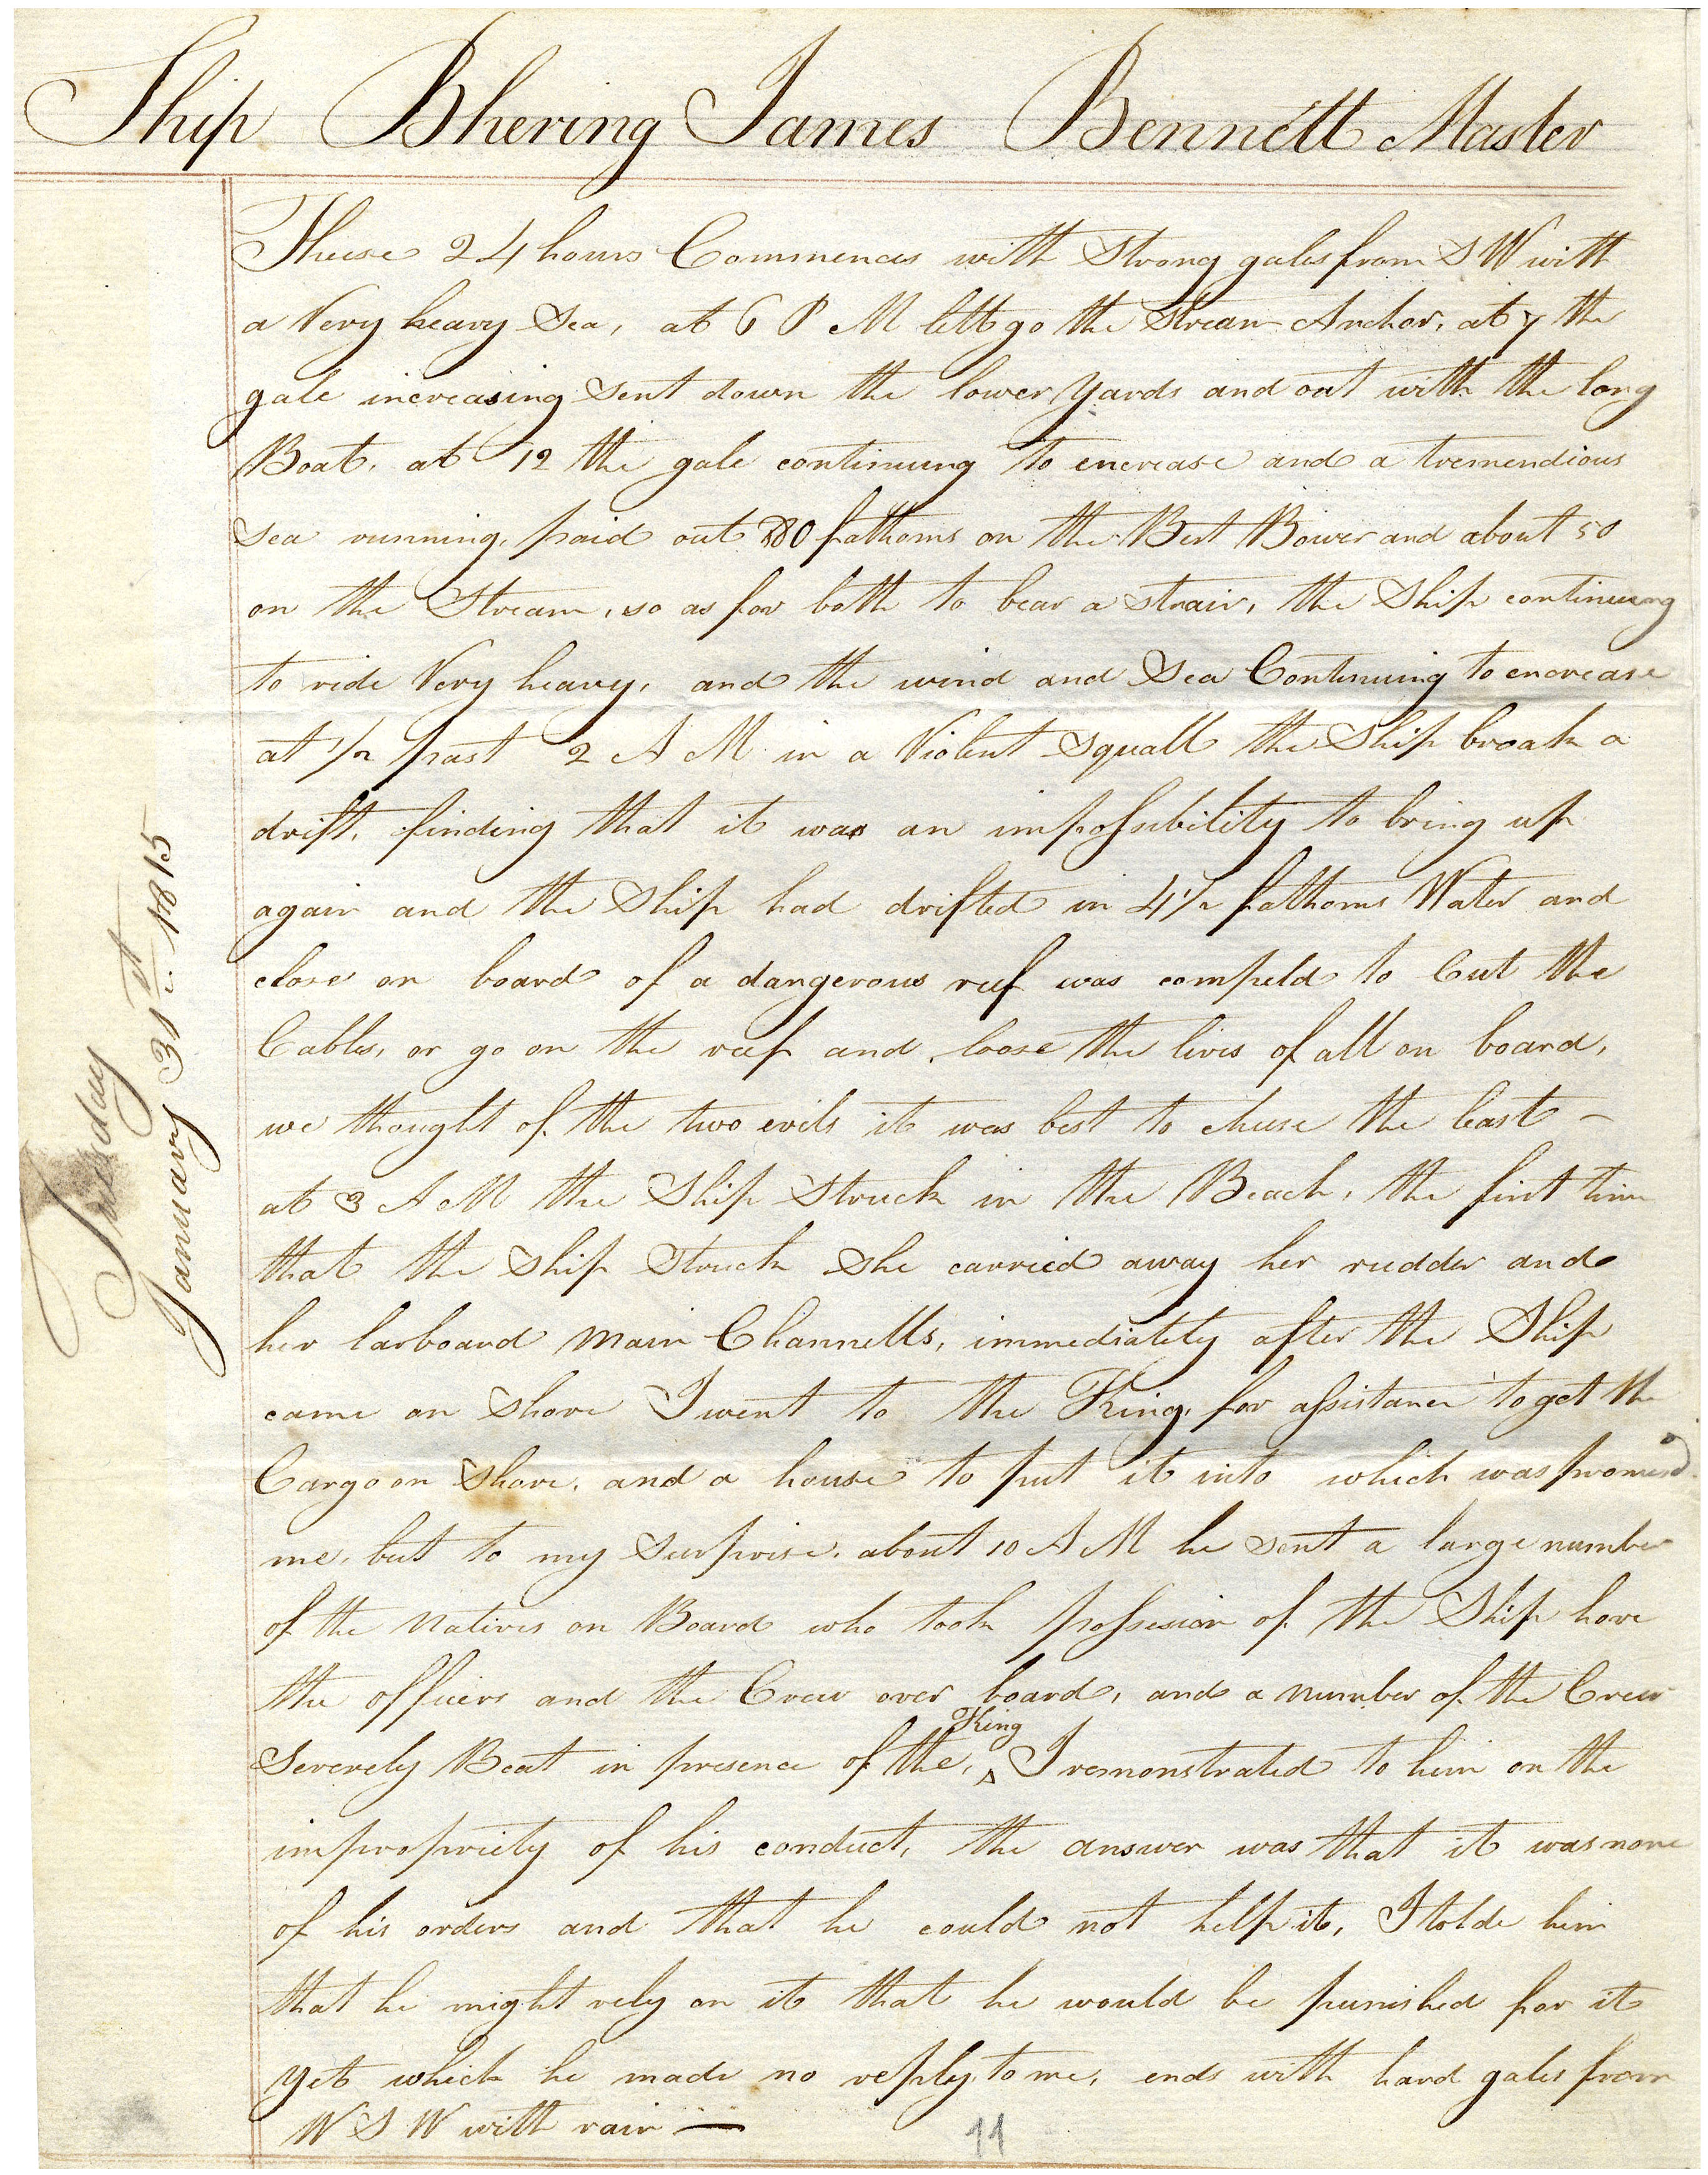 Ship Bhering James Bennett Master
Tuesday
January 31st 1815
These 24 hours Commences with Strong gales from SW with
a Very heavy Sea, at 6 P M lett go the Stream Anchor, at 7 the
gale increasing Sent down the lower Yards and out with the long
Boat, at 12 the gale continuing to encrease and a tremendious
Sea running, paid out 80 fathoms on the Best Bower and about 50
on the Stream, so as for both to bear a strain, the Ship continuing
to ride Very heavy, and the wind and Sea Continuing to encrease
at 1/2 past 2 A M in a Violent Squall the Ship broak a
drift, finding that it was an impossibility to bring up
again and the Ship had drifted in 4 1/2 fathoms Water and
close on board of a dangerous reef was compeld to Cut the
Cables, or go on the reef and loose the lives of all on board,
we thought of the two evils it was best to chuse the least –
at 3 A M the Ship Struck in the Beach, the first time
that the Ship Struck She carried away her rudder and
her larboard Main Channells, immediately after the Ship
came on Shore I went to the King, for assistance to get the
Cargo on Shore, and a house to put it into which was promised
me, but to my Surprise, about 10 A M he Sent a large number
of the Natives on Board who took possession of the Ship hove
the officers and the Crew over board, and a number of the Crew
Severely Beat in presence of the, King I remonstrated to him on the
impropriety of his conduct, the answer was that it was none
of his orders and that he could not help it, I tolde him
that he might rely on it that he would be punished for it
Yet which he made no reply to me, ends with hard gales from
W S W with rain —
11